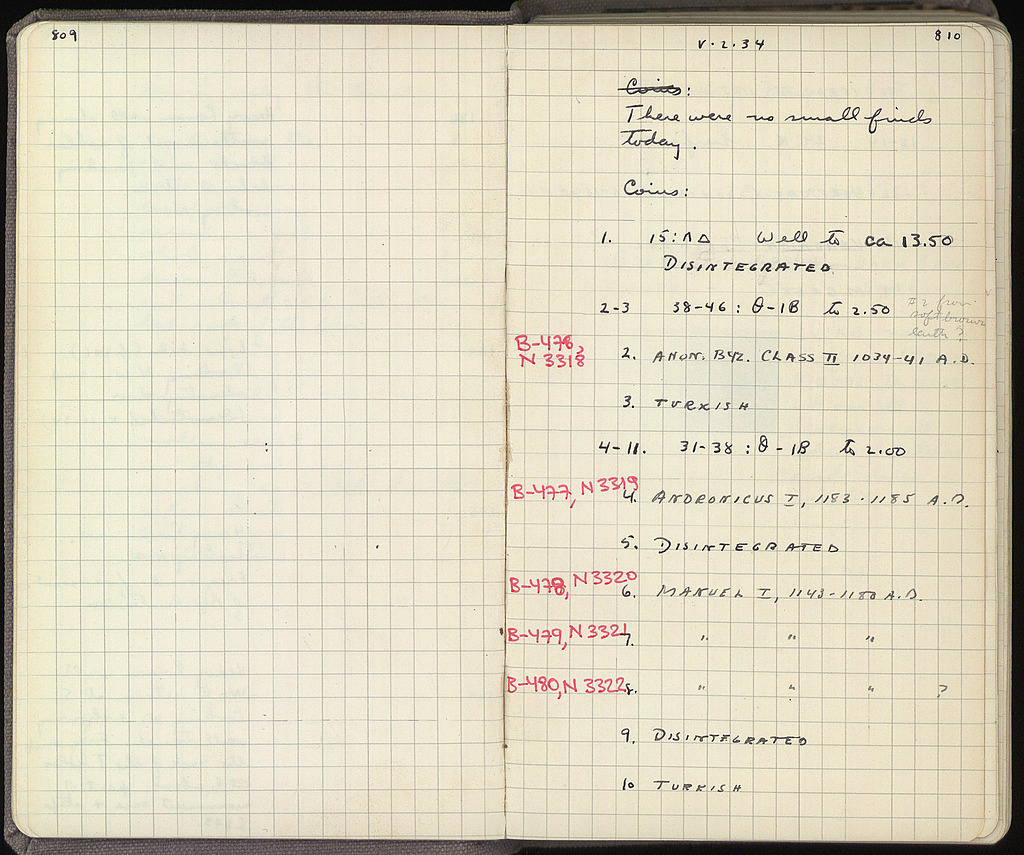 809
810
V. 2. 34
Coins:
There were no small finds
today.
Coins:
1. 15:ΛΔ Well to ca 13.50
DISINTEGRATED
2-3 38-46: Θ-ΙΒ to 2.50
#2 from
soft brown
earth?
B-478,
N 3318
2. ANON. BYZ. CLASS II 1034-41 A.D.
3. TURKISH
4-11. 31-38: Θ-ΙΒ to 2.00
B-477, N 3319
4. ANDRONICUS I, 1183-1185 A.D.
5. DISINTEGRATED
B-478, N 3320
6. MANUEL I, 1143-1180 A.D.
B-479, N 3321
7. " " "
B-480, N 3322
8. " " " ?
9. DISINTEGRATED
10 TURKISH